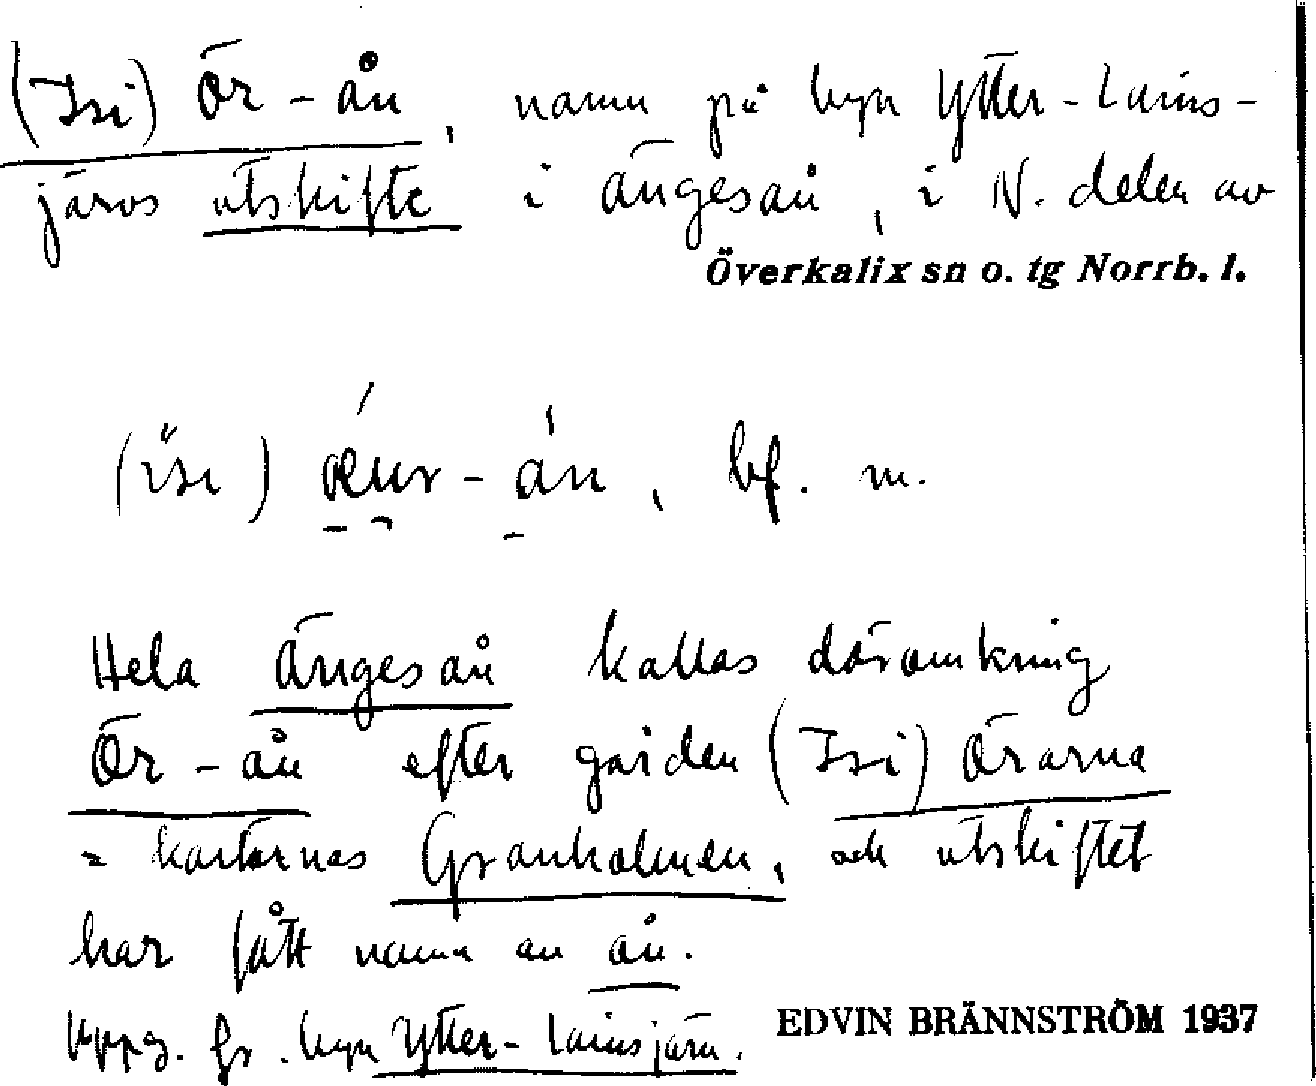 (Isi) Ör-ån, namn på byn Ytter-Lains-
järvs utskifte i Ängesån, i N. delen av
Överkalix sn o. tg Norrb. l.
(ísı) bf. m.
Hela Ängesån kallas däromkring
Ör-ån efter gården (Isi) Örarna
= kartornas Granholmen, och utskiftet
har fått namn av ån.
Uppg. fr. byn Ytter-Lainsjärv.
EDVIN BRÄNNSTRÖM 1937